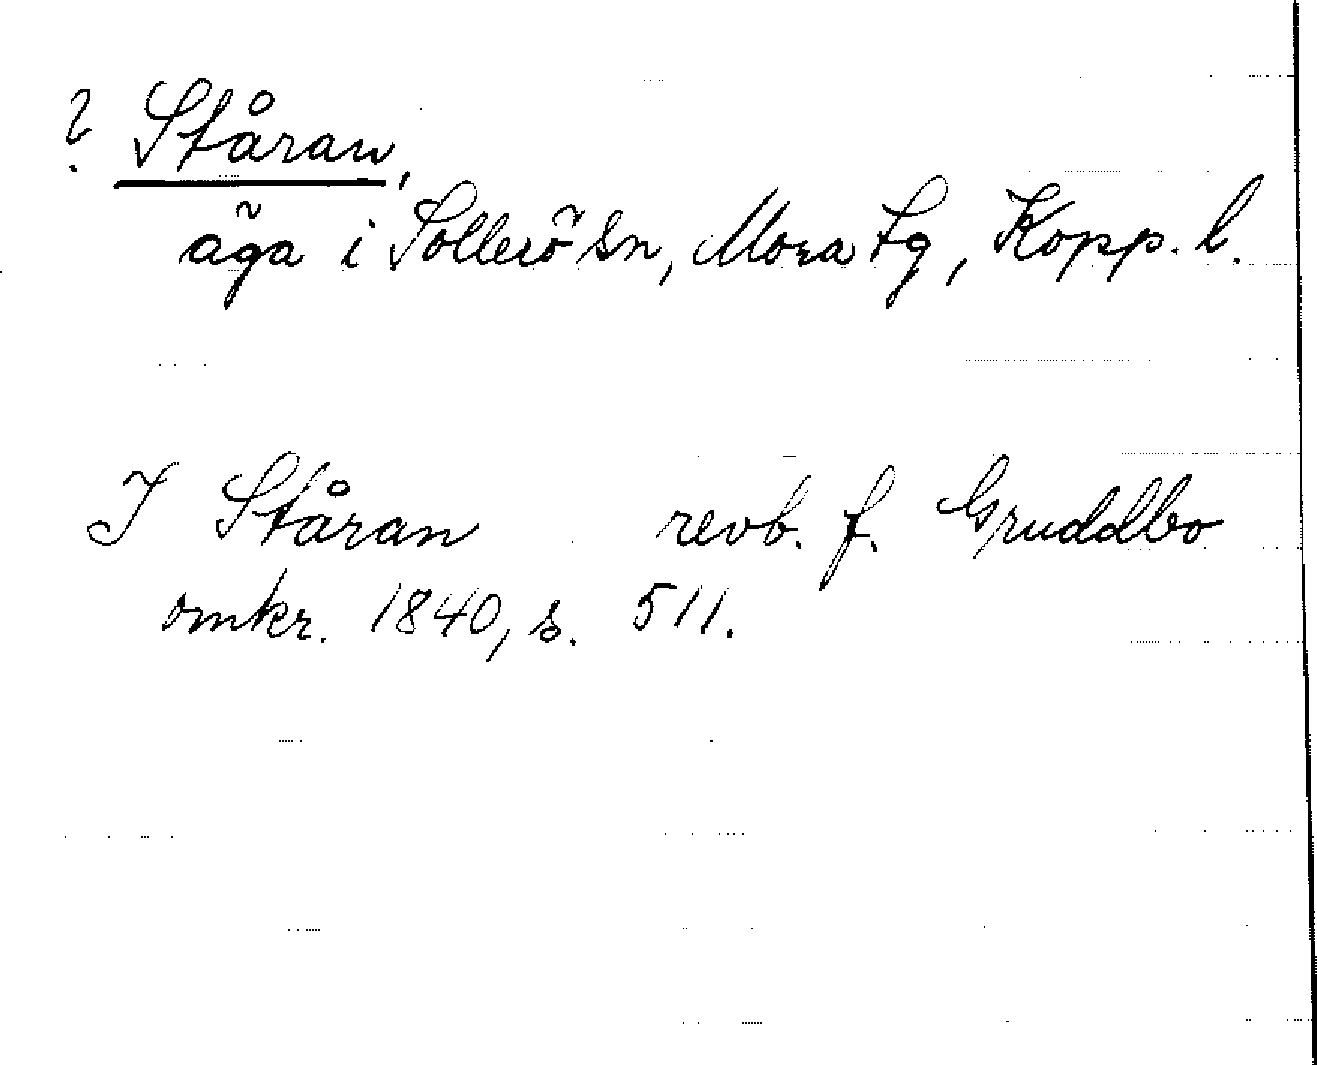 ? Ståran,
äga i Sollerö Sn, Mora tg, Kopp. l.
I Ståran revb. f. Gruddbo
omkr. 1840, s. 511.